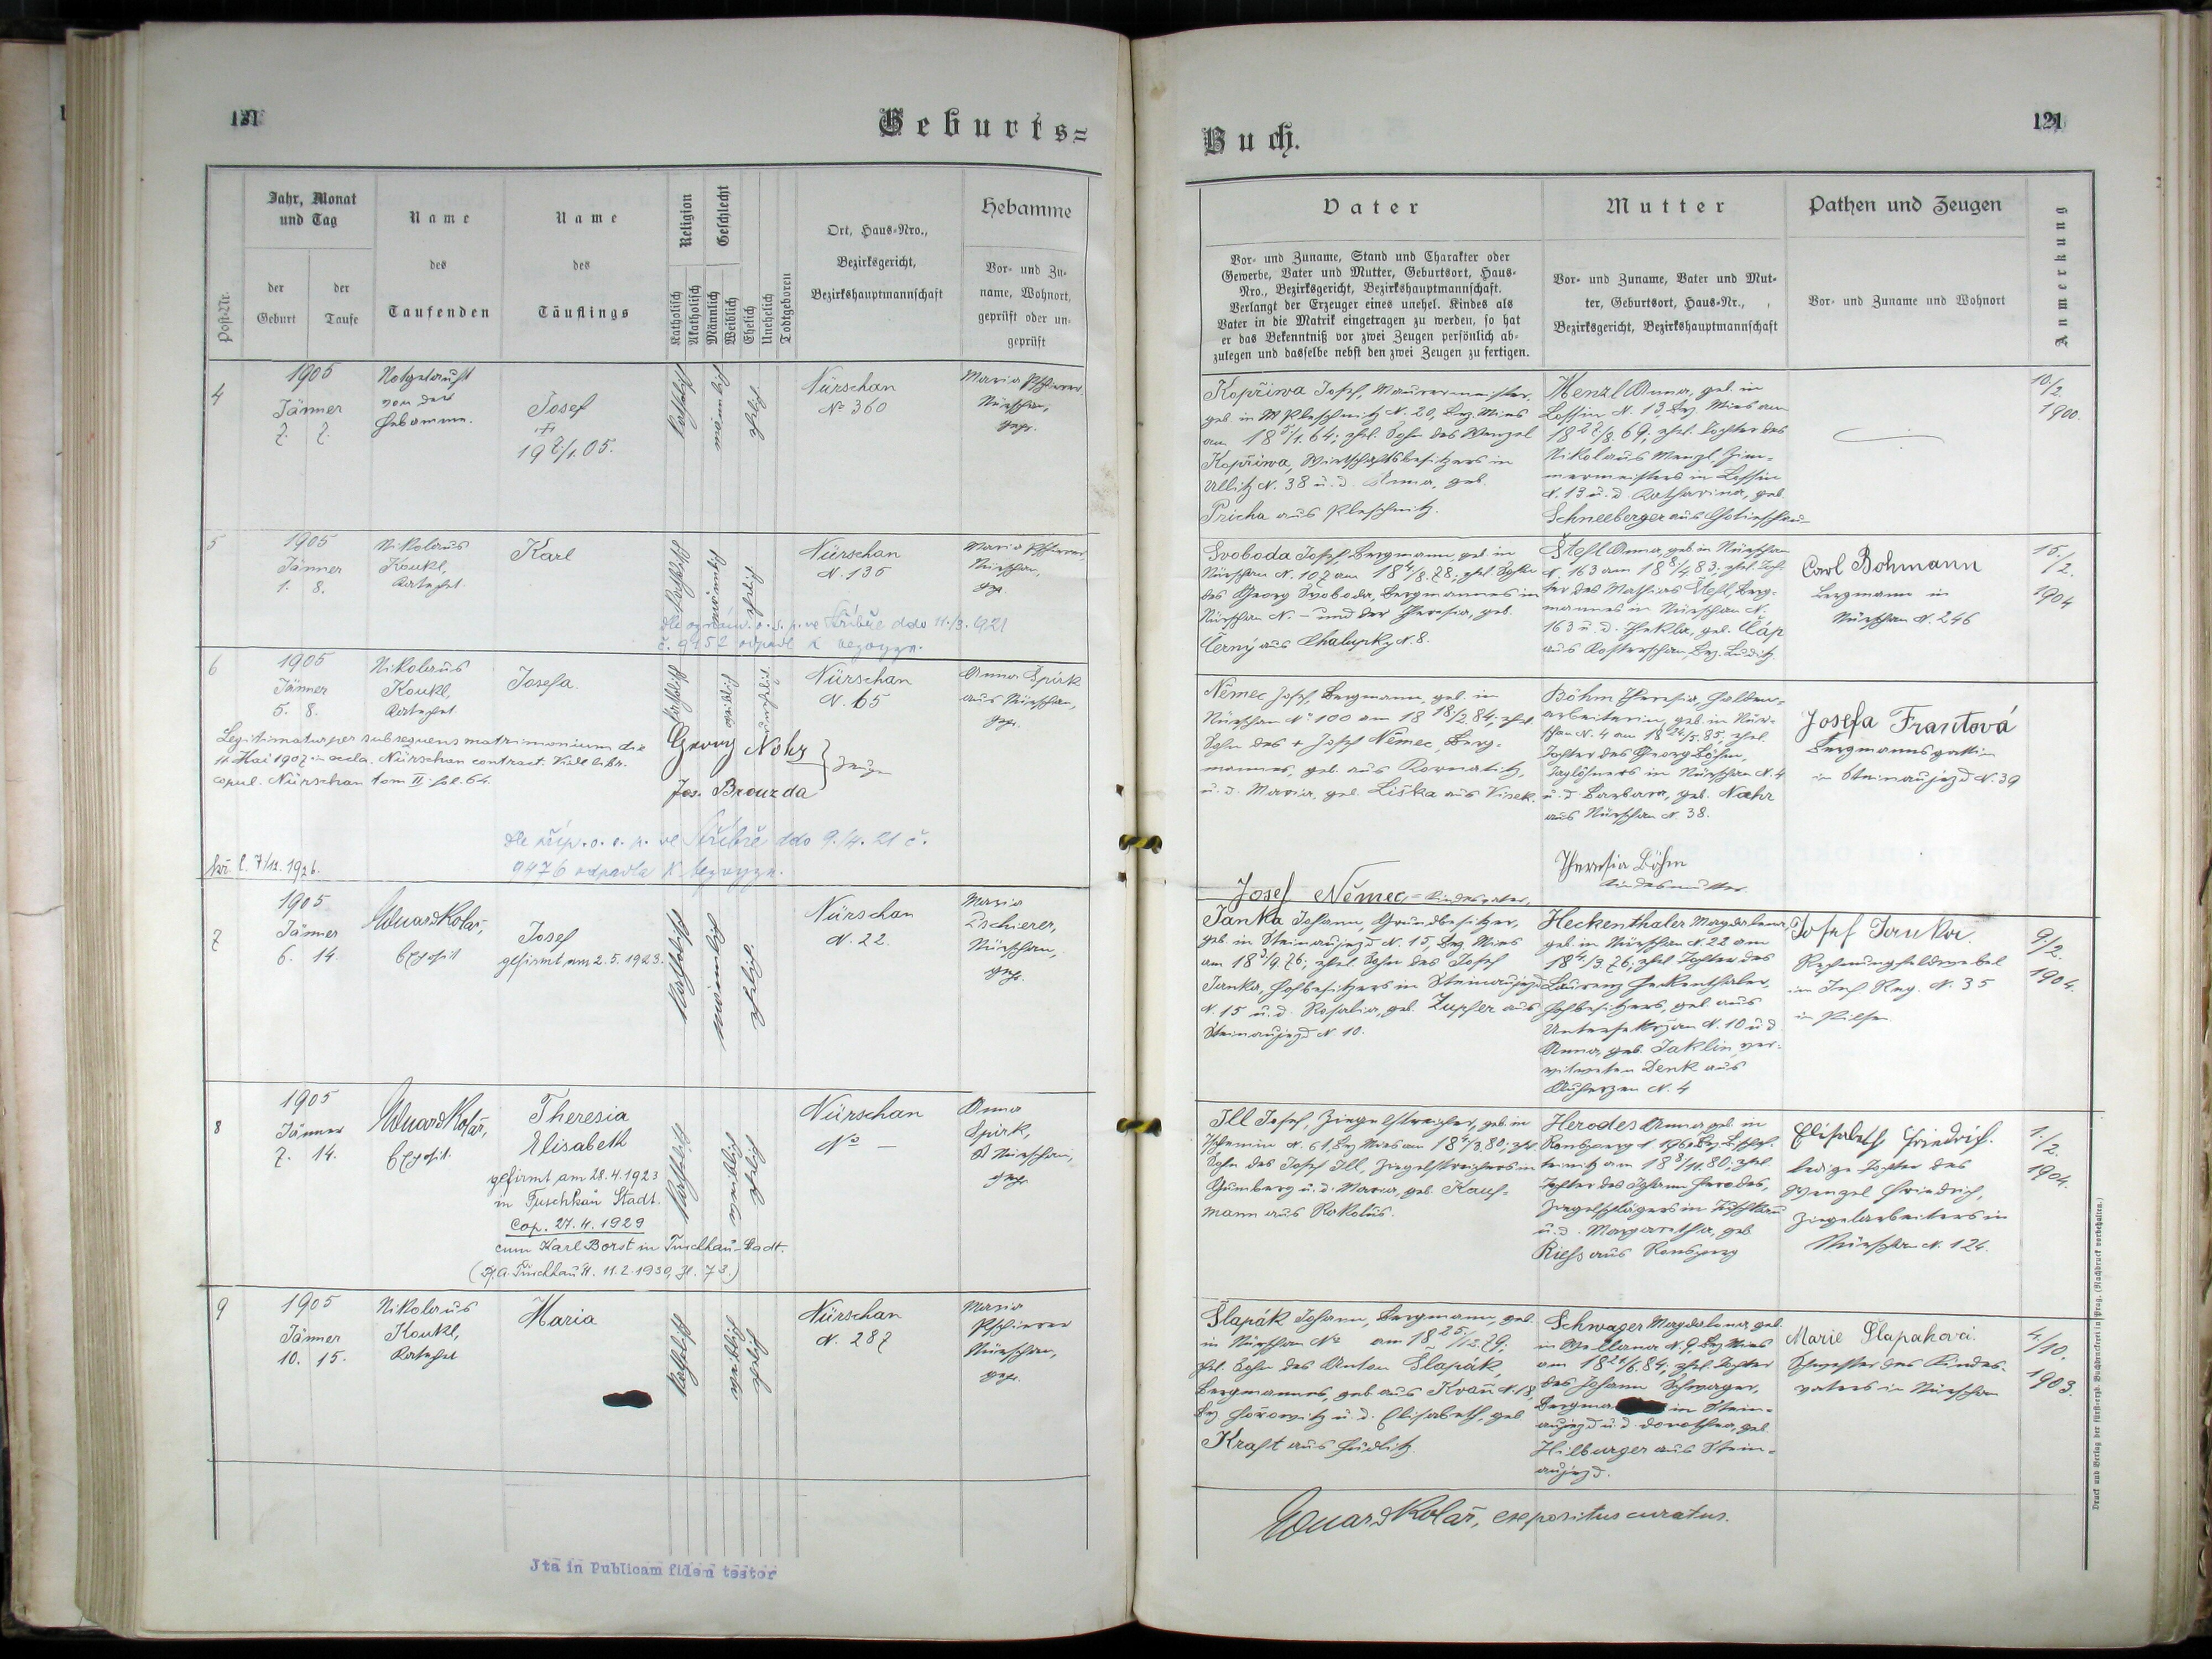 121
Geburts=
Post-Nr.
Jahr, Monat
und Tag
der
Geburt
der
Taufe
Name
des
Taufenden
Name
des
Täuflings
Religion
Katholisch
Akatholisch
Geschlecht
Männlich
Weiblich
Ehelich
Unehelich
Todtgeboren
Ort, Haus-Nro.,
Bezirksgericht,
Bezirkshauptmannschaft
Hebamme
Vor- und Zu-
name, Wohnort,
geprüft oder un-
geprüft
4
1905
Jänner
7. 7.
Notgetauft
von der
Hebamme.
Josef
19 7/1 05.
katholisch
männlich
ehelich
Nürschan
No 360
Maria
Nürschan,
gepr.
5
1905
Jänner
1. 8.
Nikolaus
Koukl,
Katechet.
Karl
katholisch
männlich
ehelich
Nürschan
N. 135
Maria
Nürschan,
gepr.
dle oznám. o. s. p. ve Stříbře ddo 11./3. 1921
č. 9452 odpadl k bezvyzn.
6
1905
Jänner
5. 8.
Nikolaus
Koukl,
Katechet
Josefa.
katholisch
weiblich
unehelich
Nürschan
N. 65
Anna Spirk
aus Nürschan,
gepr.
Legitimatur per subsequens matrimonium die
11 Mai 1907 in eccla. Nürschan contract. Vide libr.
copul. Nürschan tom II. fol. 64.
Georg Nohr
Jos. Brouzda
} Zeugen
dle příp. o. s. p. ve Stříbře ddo 9./4. 21 č.
9476 odpadla k bezvyzn.
7/12. 1926.
7
1905
Jänner
6. 14.
Eduard Kolář,
Exposit
Josef
gefirmt am 2. 5. 1923.
katholisch
männlich
ehelich
Nürschan
N. 22.
Maria
Pschierer,
Nürschan,
gepr.
8
1905
Jänner
7. 14.
Eduard Kolář,
Exposit.
Theresia
Elisabeth
gefirmt am 28. 4. 1923
in Tuschkau Stadt.
Cop. 27. 4. 1929
cum Karl Borst in Tuschkau-Stadt.
(Pf. A. Tuschkau St. 11. 2. 1930, Zl. 73.)
katholisch
weiblich
ehelich
Nürschan
No —
Anna
Spirk,
Nürschan,
gepr.
9
1905
Jänner
10. 15.
Nikolaus
Koukl,
Katechet
Maria
katholisch
weiblich
ehelich
Nürschan
N. 287
Maria
Pschierer
Nürschan,
gepr.
Jta in Publicam fidem testor
Buch.
121
Vater
Vor- und Zuname, Stand und Charakter oder
Gewerbe, Vater und Mutter, Geburtsort, Haus-
Nro., Bezirksgericht, Bezirkshauptmannschaft.
Verlangt der Erzeuger eines unehel. Kindes als
Vater in die Matrik eingetragen zu werden, so hat
er das Bekenntniß vor zwei Zeugen persönlich ab-
zulegen und dasselbe nebst den zwei Zeugen zu fertigen.
Mutter
Vor- und Zuname, Vater und Mut-
ter, Geburtsort, Haus-Nr.,
Bezirksgericht, Bezirkshauptmannschaft
Pathen und Zeugen
Vor- und Zuname und Wohnort
Anmerkung
Kopřiwa Josef, Maurermeister,
geb. in Pleschnitz N. 20, Bez. Mies
am 18 5/1. 64; ehel. Sohn des Wenzel
Kopřiwa, Wirtschaftsbesitzers in
Ullitz N. 38 u. d. Anna, geb.
Pricha aus Pleschnitz.
Menzl Anna, geb. in
Lossin N. 13, Bez. Mies am
18 27/8. 69; ehel. Tochter des
Nikolaus Menzl, Zim-
mermeisters in Lossin
N. 13 u. d. Katharina, geb.
Schneeberger aus Chotieschau
10./2.
1900.
Svoboda Josef, Bergmann, geb. in
Nürschan N. 107 am 18 4/8. 78; ehel. Sohn
des Georg Svoboda, Bergmannes in
Nürschan N. — und der Theresia, geb.
Černý aus Chalupky N. 8.
Štefl Anna, geb. in Nürschan
N. 163 am 18 8/4. 83; ehel. Toch-
ter des Mathias Štefl, Berg-
mannes in Nürschan N.
163 u. d. Thekla, geb. Čáp
aus Kosterschan, Bez. Luditz.
Carl Bohmann
Bergmann in
Nürschan N. 246
15./2.
1904
Němec Josef, Bergmann, geb. in
Nürschan No 100 am 18 18./2. 84; ehel.
Sohn des + Josef Němec, Berg-
mannes, geb. aus
u. d. Maria, geb. Liška aus Visek.
Josef Němec = Kindesvater,
Böhm Theresia, Halden-
arbeiterin, geb. in Nür-
schan N. 4 am 18 24/5. 85; ehel.
Tochter des Georg Böhm,
Taglöhners in Nürschan N. 4
u. d. Barbara, geb. Nohr
aus Nürschan N. 38.
Theresia Böhm
Kindesmutter
Josefa Frantová
Bergmannsgattin
in Steinaujezd N. 39
Janka Johann, Grundbesitzer,
geb. in Steinaujezd N. 15, Bez. Mies
am 18 3/9. 76; ehel. Sohn des Josef
Janka, Hofbesitzers in Steinaujezd
N. 15 u. d. Rosalia, geb. Zupfer aus
Steinaujezd N. 10.
Heckenthaler Magdalena,
geb. in Nürschan N. 22 am
18 4./3. 76; ehel. Tochter des
Laurenz Heckenthaler,
Hofbesitzers, geb. aus
Untersekrzan N. 10 u. d.
Anna, geb. Jaklin, ver-
witweten Denk aus
Auherzen N. 4
Josef Janka.
Rechnungsfeldwebel
im Inf. Reg. N. 35
in Pilsen
9./2.
1904.
Ill Josef, Ziegelstreicher, geb. in
Tschemin N. 61, Bez. Mies am 18 4/3. 80; ehel.
Sohn des Josef Ill, Ziegelstreichers in
Gumberg u. d. Maria, geb. Kauf-
mann aus Rokolus.
Herodes Anna, geb. in
Ronsperg N. 196, Bez. Bischof-
teinitz am 18 8/11. 80; ehel.
Tochter des Johann Herodes,
Ziegelschlägers in Tuschkau
u. d. Margaretha, geb.
Riess aus Ronsperg
Elisabeth Friedrich.
ledige Tochter des
Wenzel Friedrich,
Ziegelarbeiters in
Nürschan N. 124.
1./2.
1904.
Šlapák Johann, Bergmann, geb.
in Nürschan No am 18 25./12. 79;
ehel. Sohn des Anton Šlapák,
Bergmannes, geb. aus Kvaň N. 18,
Bez. Hořowitz u. d. Elisabeth, geb.
Kraft aus Hudlitz.
Schwager Magdalena, geb.
in N. 9, Bez. Mies
am 18 24/6. 84; ehel. Tochter
des Johann Schwager,
in Stein-
aujezd u. d. Dorothea, geb.
Hilburger aus Stein-
aujezd.
Marie Šlapaková
Schwester des Kindes-
vaters in Nürschan
4./10.
1903.
Eduard Kolář, expositus curatus.
Druck und Verlag der fürst-erzb. Buchdruckerei in Prag. (Nachdruck vorbehalten.)